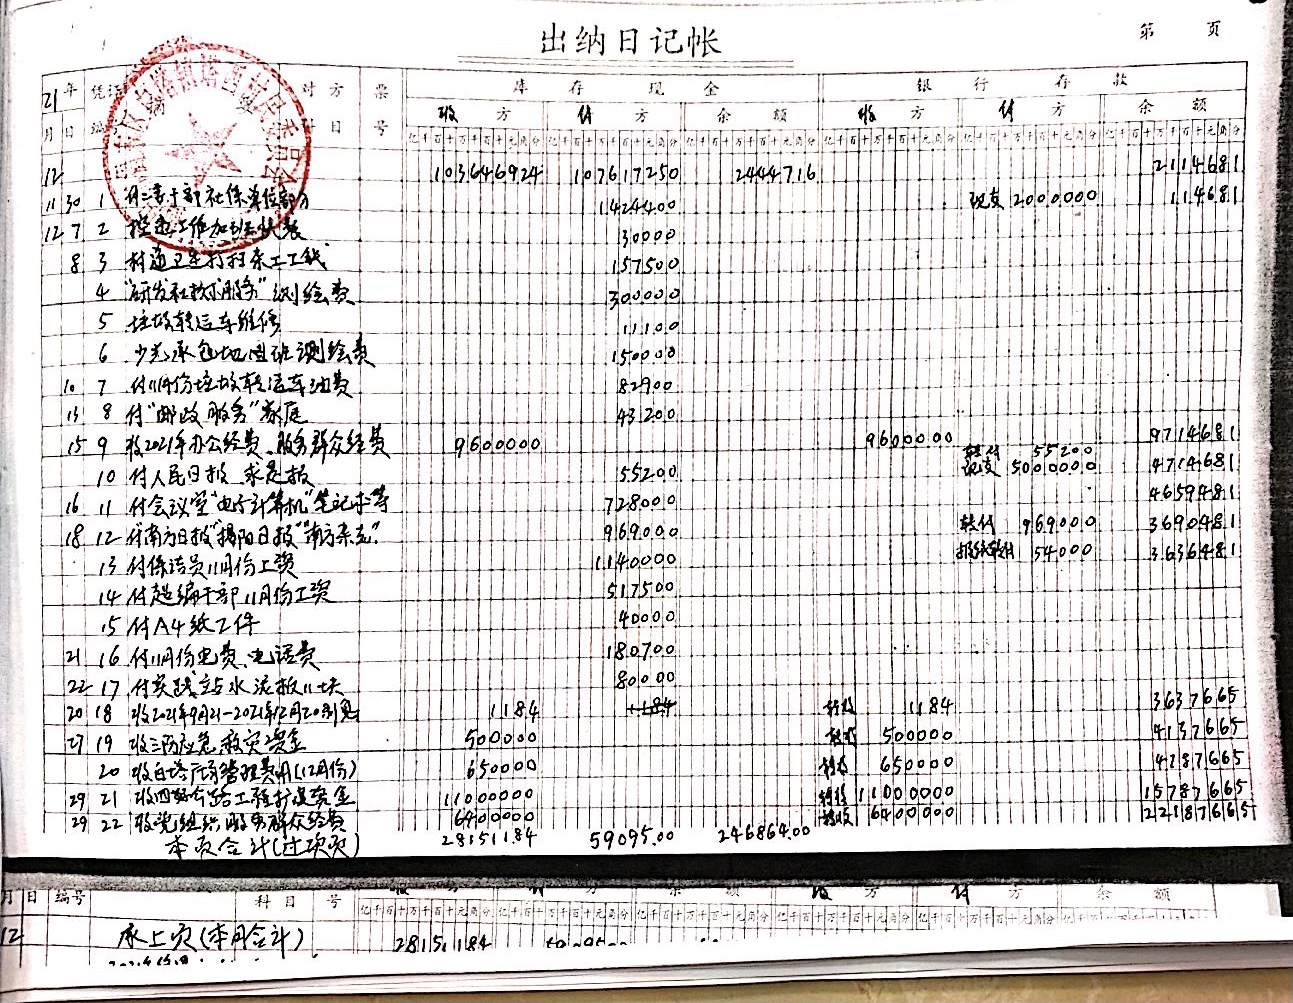 出纳日记帐
第 页
21年 凭证 对方 票 库存现金 银行存款
月 日 编号 科目 号 收方 付方 余额 收方 付方 余额
12 103646924 107617250 2444716 2114681
11 30 1 社保单位部分 1424400 现支 2000000 114681
12 7 2 工作加班伙食 30000
8 3 村道卫生打扫杂工工钱 157500
4 "研发社技术服务"测绘费 300000
5 垃圾转运车维修 11100
6 承包地 测绘费 150000
10 7 付11月份垃圾转运车油费 82900
13 8 付"邮政服务"家庭 43200
15 9 收2021年办公经费、服务群众经费 9600000 9600000 9714681
10 付人民日报 求是报 55200 转付 55200 现支 5000000 4714681
16 11 付会议室"电子计算机"笔记本等 728000 4659481
18 12 付南方日报"揭阳日报""南方杂志". 969000 转付 969000 3690481
13 付保洁员11月份工资 1140000 54000 3636481
14 付超编干部11月份工资 517500
15 付A4纸2件 40000
21 16 付11月份电费、电话费 180700
22 17 付实践站水泥板11块 80000
20 18 收2021年9月21-2021年12月20利息 1184 1184 转收 1184 3637665
27 19 收三防应急救灾资金 500000 转收 500000 4137665
20 收白塔广场管理费用(12月份) 650000 转收 650000 4787665
29 21 收四好公路工程 资金 11000000 转收 11000000 15787665
29 22 收党组织服务群众经费 6400000 转收 6400000 22187665
本页合计(过次页) 28151184 59095.00 246864.00
月 日 编号 科目 号 收方 付方 余额 收方 付方 余额
12 承上页(本月合计) 28151184